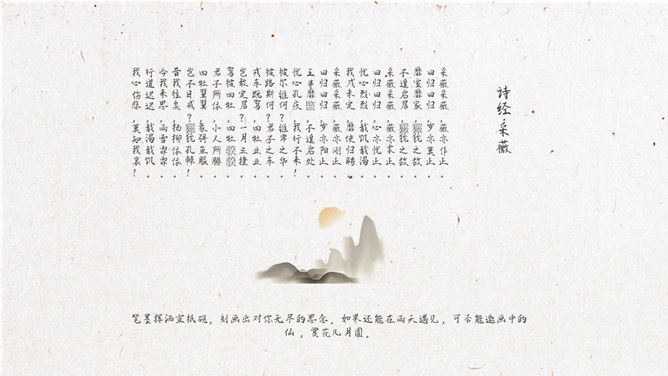 诗经·采薇
采薇采薇,薇亦作止。
曰归曰归,岁亦莫止。
靡室靡家,猃狁之故。
不遑启居,猃狁之故。
采薇采薇,薇亦柔止。
曰归曰归,心亦忧止。
忧心烈烈,载饥载渴。
我戍未定,靡使归聘。
采薇采薇,薇亦刚止。
曰归曰归,岁亦阳止。
王事靡盬,不遑启处。
忧心孔疚,我行不来!
彼尔维何?维常之华。
彼路斯何?君子之车。
戎车既驾,四牡业业。
岂敢定居?一月三捷。
驾彼四牡,四牡骙骙。
君子所依,小人所腓。
四牡翼翼,象弭鱼服。
岂不日戒?猃狁孔棘!
昔我往矣,杨柳依依。
今我来思,雨雪霏霏。
行道迟迟,载渴载饥。
我心伤悲,莫知我哀!
笔墨挥洒宣纸砚,刻画出对你无尽的思念。如果还能在雨天遇见,可否能邀画中的
仙,赏花儿月圆。